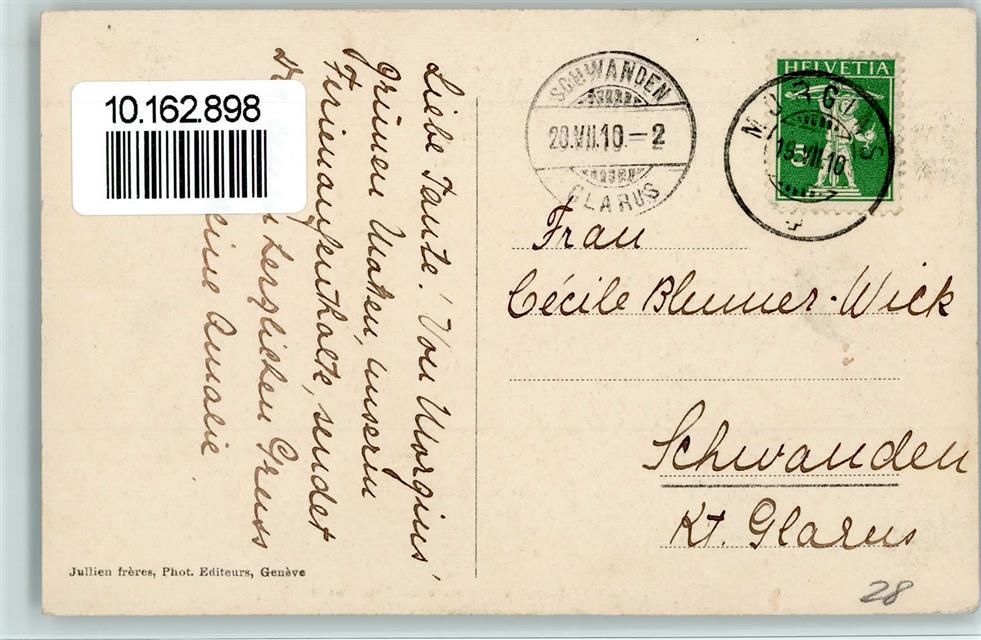 10.162.898
Liebe Tante! Von Morgins'
Grünen Matten, unserm
Ferienaufenthalte, sendet
herzlichen Gruss
Amalie
SCHWANDEN
20.VII.10.-2
GLARUS
HELVETIA
5
MORGINS
19.VII.10
Frau
Cécile Blumer-Wick
Schwanden
Kt. Glarus
Jullien frères, Phot. Editeurs, Genève
28